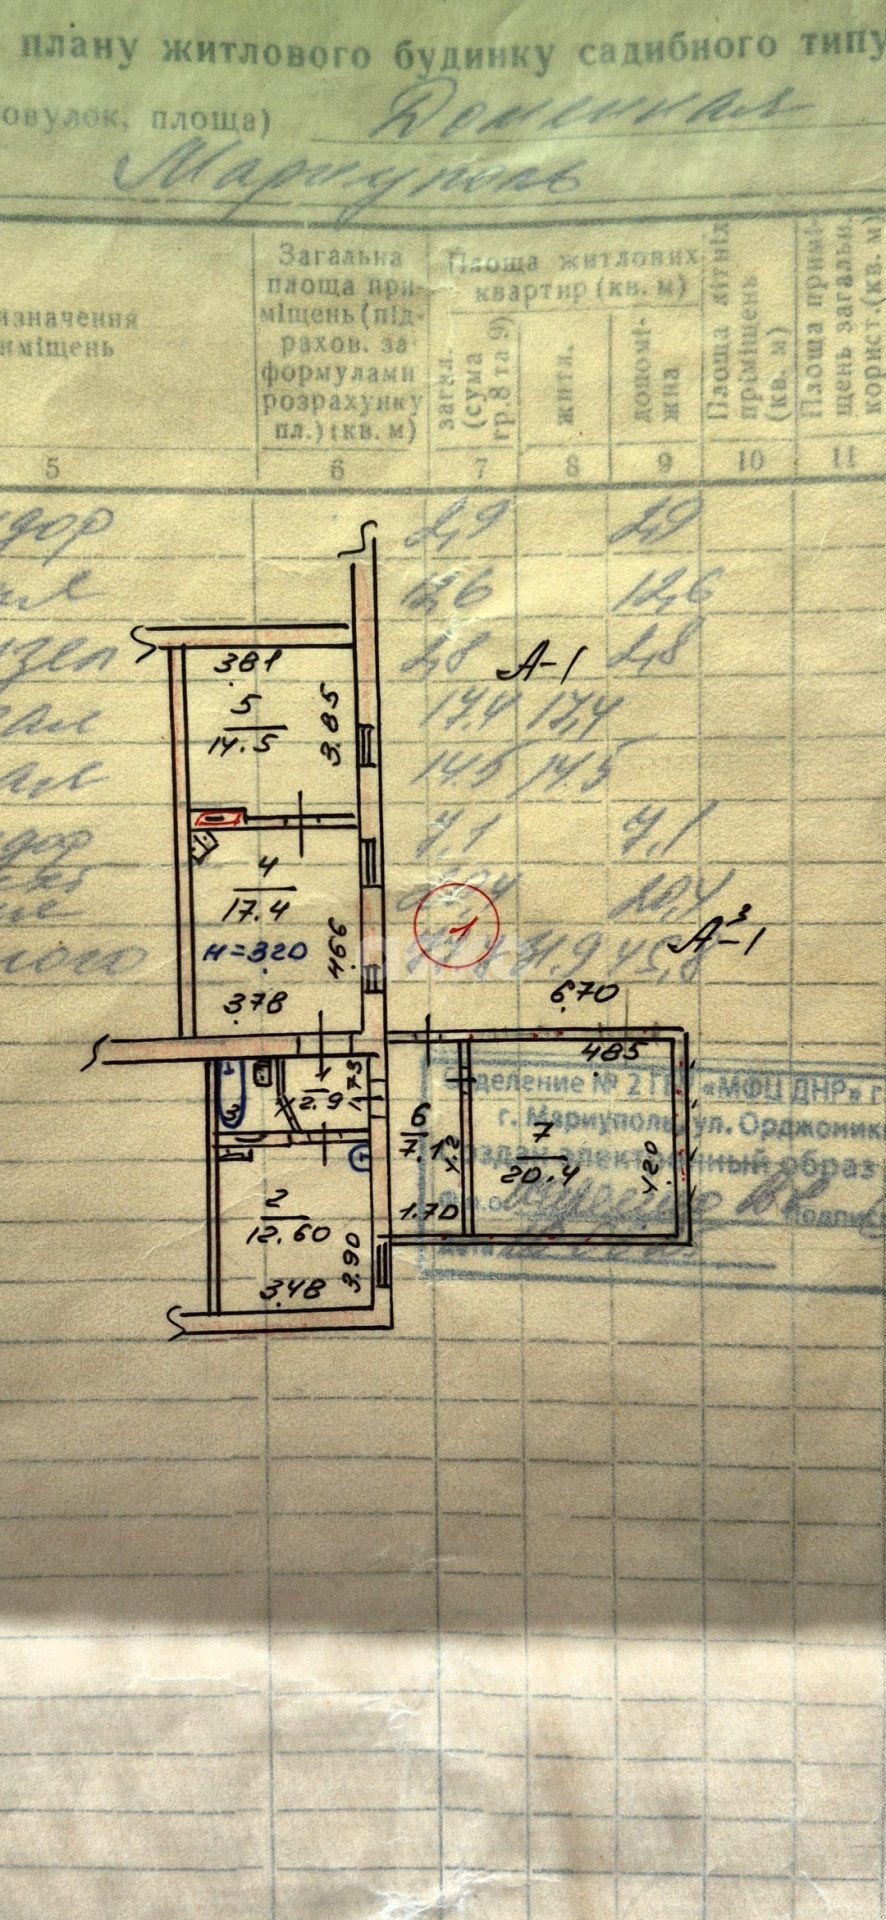 плану житлового будинку садибного типу
овулок, площа) Доменная
Мариуполь
изначення
иміщень
Загальна
площа при-
міщень (під-
рахов. за
формулами
розрахунку
пл.) (кв. м)
Площа житлових
квартир (кв. м)
загал.
(сума
гр. 8 та 9)
житл.
допомі-
жна
Площа літніх
приміщень
(кв. м)
Площа примі-
щень загальн.
корист. (кв. м)
5 6 7 8 9 10 11
дор 2,9 2,9
12,6 12,6
узел 2,8 2,8
17.4 17,4
14.5 14.5
дор 7,1 7,1
20,4
А-1
381
5
14.5
3.85
4
17.4
Н=320
466
378
1
А³-1
670
485
1
2.9
1.73
3
6
7.1
4.2
1.70
7
20.4
4.20
2
12.60
3.90
3.48
Отделение № 2 ГБУ «МФЦ ДНР» г.
г. Мариуполь, ул. Орджоники
оздан электронный образ
Ф.и.о.
подпись
Дата